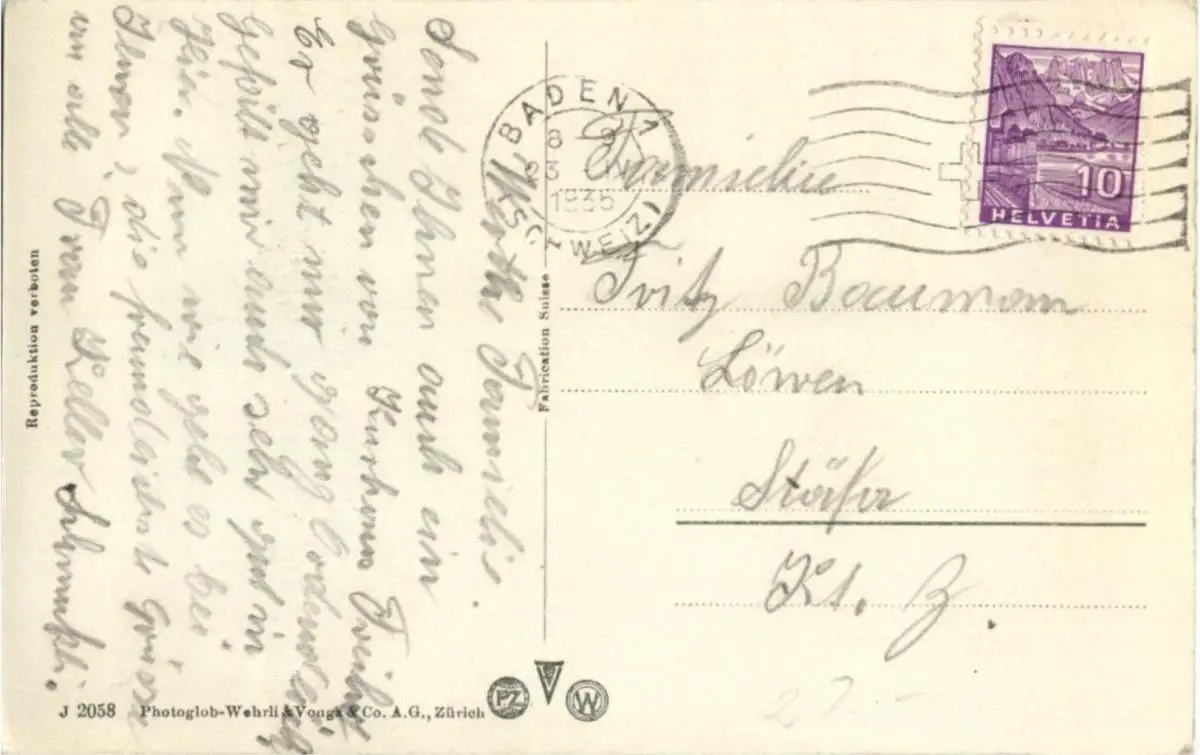 Werthe Familie.
Sende Ihnen auch ein
Grüsschen von Kurhaus Freihof
Es geht mir ganz ordentlich,
gefällt mir auch sehr gut in
hier. Nun wie geht es bei
Ihnen, die freundlichste Grüsse
an alle Frau Keller
Reproduktion verboten
J 2058 Photoglob-Wehrli & Vouga & Co. A.G., Zürich
PZ
V
W
Fabrication Suisse
BADEN 1
8 - 9
23
1935
(SCHWEIZ)
10
HELVETIA
Familie
Fritz Baumann
Löwen
Stäfa
Kt. Z.
27.-